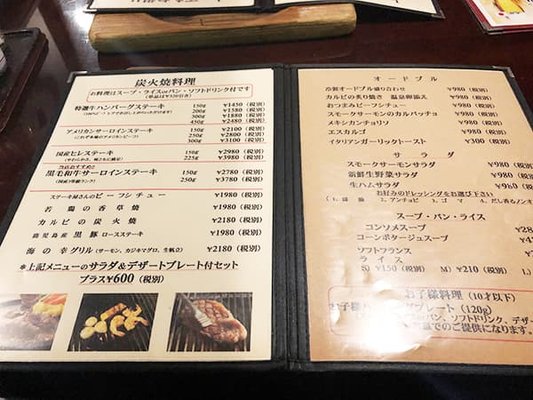 炭火焼料理
お料理はスープ・ライスorパン・ソフトドリンク付です
特選牛ハンバーグステーキ 150g ¥1450 (税別)
200g ¥1580 (税別)
300g ¥1880 (税別)
450g ¥2480 (税別)
アメリカンサーロインステーキ 150g ¥2100 (税別)
200g ¥2800 (税別)
300g ¥3100 (税別)
国産ヒレステーキ 150g ¥2980 (税別)
225g ¥3980 (税別)
当店おすすめ!!
黒毛和牛サーロインステーキ 150g ¥2780 (税別)
¥3780 (税別)
ステーキ屋さんのビーフシチュー ¥1980 (税別)
若鶏の香草焼 ¥1980 (税別)
カルビの炭火焼 ¥2180 (税別)
鹿児島産 黒豚 ロースステーキ ¥1980 (税別)
海の幸グリル (サーモン、カジキマグロ、生帆立) ¥2180 (税別)
*上記メニューのサラダ&デザートプレート付セット
プラス¥600 (税別)
オードブル
冷製オードブル盛り合わせ ¥980 (税別)
カルビの炙り焼き 温泉卵添え ¥980 (税別)
おつまみビーフシチュー ¥980 (税別)
スモークサーモンのカルパッチョ ¥980 (税別)
メキシカンチョリソ ¥980 (税別)
エスカルゴ ¥980 (税別)
イタリアンガーリックトースト ¥300 (税別)
サラダ
スモークサーモンサラダ ¥980 (税別)
新鮮生野菜サラダ ¥980 (税別)
生ハムサラダ ¥960 (税別)
お好みのドレッシングをお選び下さい
スープ・パン・ライス
コンソメスープ
コーンポタージュスープ
ソフトフランス
ライス
S) ¥150 (税別) M) ¥210 (税別)
お子様料理 (10才以下)
プレート (120g)
でのご提供になります